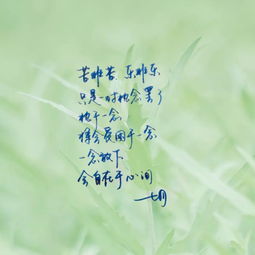 苦非苦 乐非乐
只是一时执念罢了
执于一念
将会受困于一念
一念放下
会自在于心间
一七月